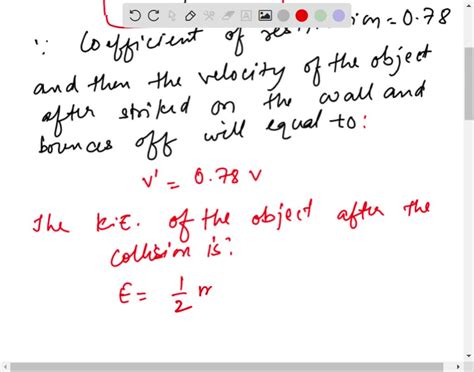 ∵ Coefficient of = 0.78
and then the velocity of the object
after striked on the wall and
bounces off will equal to:
v' = 0.78 v
The K.E. of the object after the
collision is:
E = 1/2 m